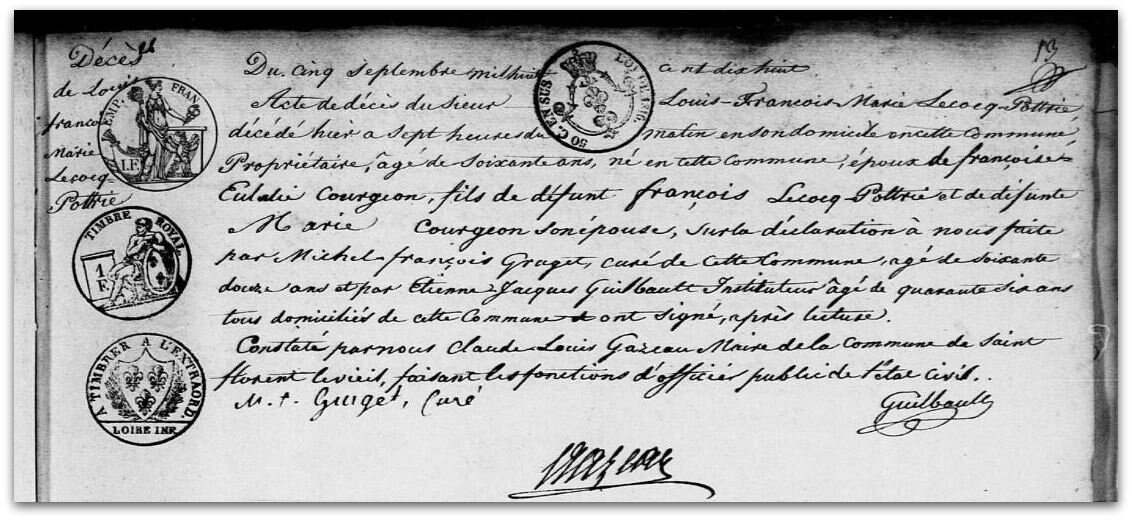 Décès
de Louis
françois
Marie
Lecocq-
Pottrie
EMP. FRAN
1.F.
TIMBRE ROYAL
1
F.
A TIMBRER A L'EXTRAORD.
LOIRE INF.
50 C. EN SUS
LOI DE 1816.
13
Du cinq septembre mil huit cent dix huit
Acte de décès du Sieur Louis-François-Marie Lecocq-Pottrié,
décédé hier a sept heures du matin en son domicile en cette Commune
Propriétaire, âgé de soixante ans, né en cette commune, époux de françoise-
Eulalie Courgeon, fils de défunt françois Lecocq-Pottrie et de défunte
Marie Courgeon son épouse, sur la déclaration à nous faite
par Michel-françois Gruget, curé de cette Commune, agé de soixante
douze ans et par Etienne-Jacques Guilbault Instituteur âgé de quarante six ans
tous domiciliés de cette Commune et ont signé, après lecture.
Constaté par nous Claude Louis Gazeau Maire de la Commune de Saint
florent le vieil, faisant les fonctions d'officier public de l'état civil.
M. f. Gruget, Curé
Guilbault
Gazeau